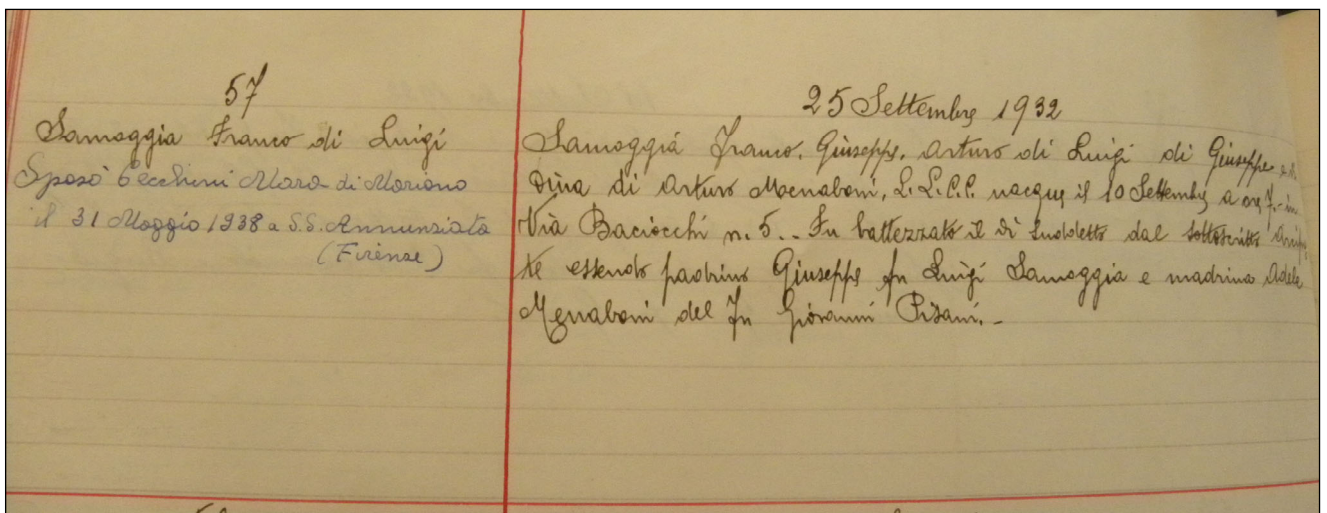 57
Samoggia Franco di Luigi
Sposò Cecchini Mara di Mariano
il 31 Maggio 1938 a S.S. Annunziata
(Firenze)
25 Settembre 1932
Samoggia Franco. Giuseppe. Arturo di Luigi di Giuseppe e di
Dina di Arturo Menaboni, L.L.C.C. nacque il 10 Settembre a ore 7.- in
Via Baciocchi n. 5. _ Fu battezzato il dì suddetto dal sottoscritto Arcipre
te essendo padrino Giuseppe fu Luigi Samoggia e madrina Adele
Menaboni del fu Giovanni Pisani. _